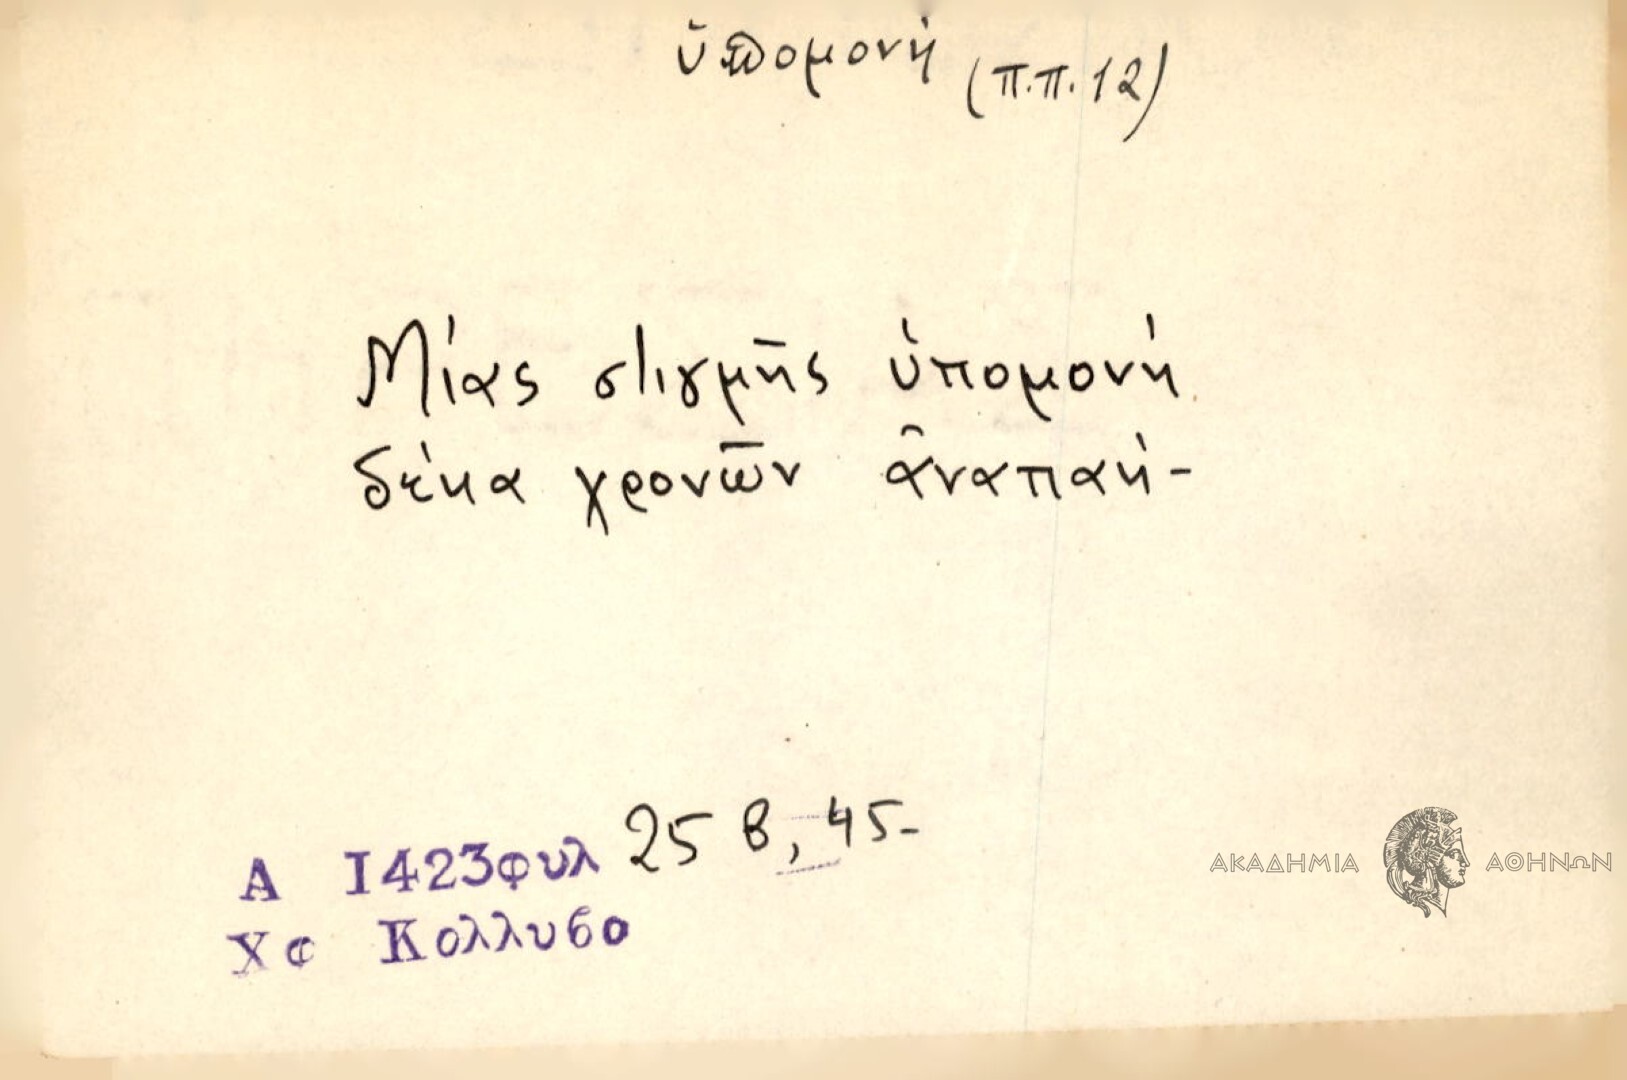 ὑπομονή (π.π. 12)
Μίας στιγμῆς ὑπομονή
δέκα χρονῶν ἀναπαή-
Α 1423φυλ 25 β, 45-
Χφ Κολλυβο
ΑΚΑΔΗΜΙΑ ΑΘΗΝΩΝ